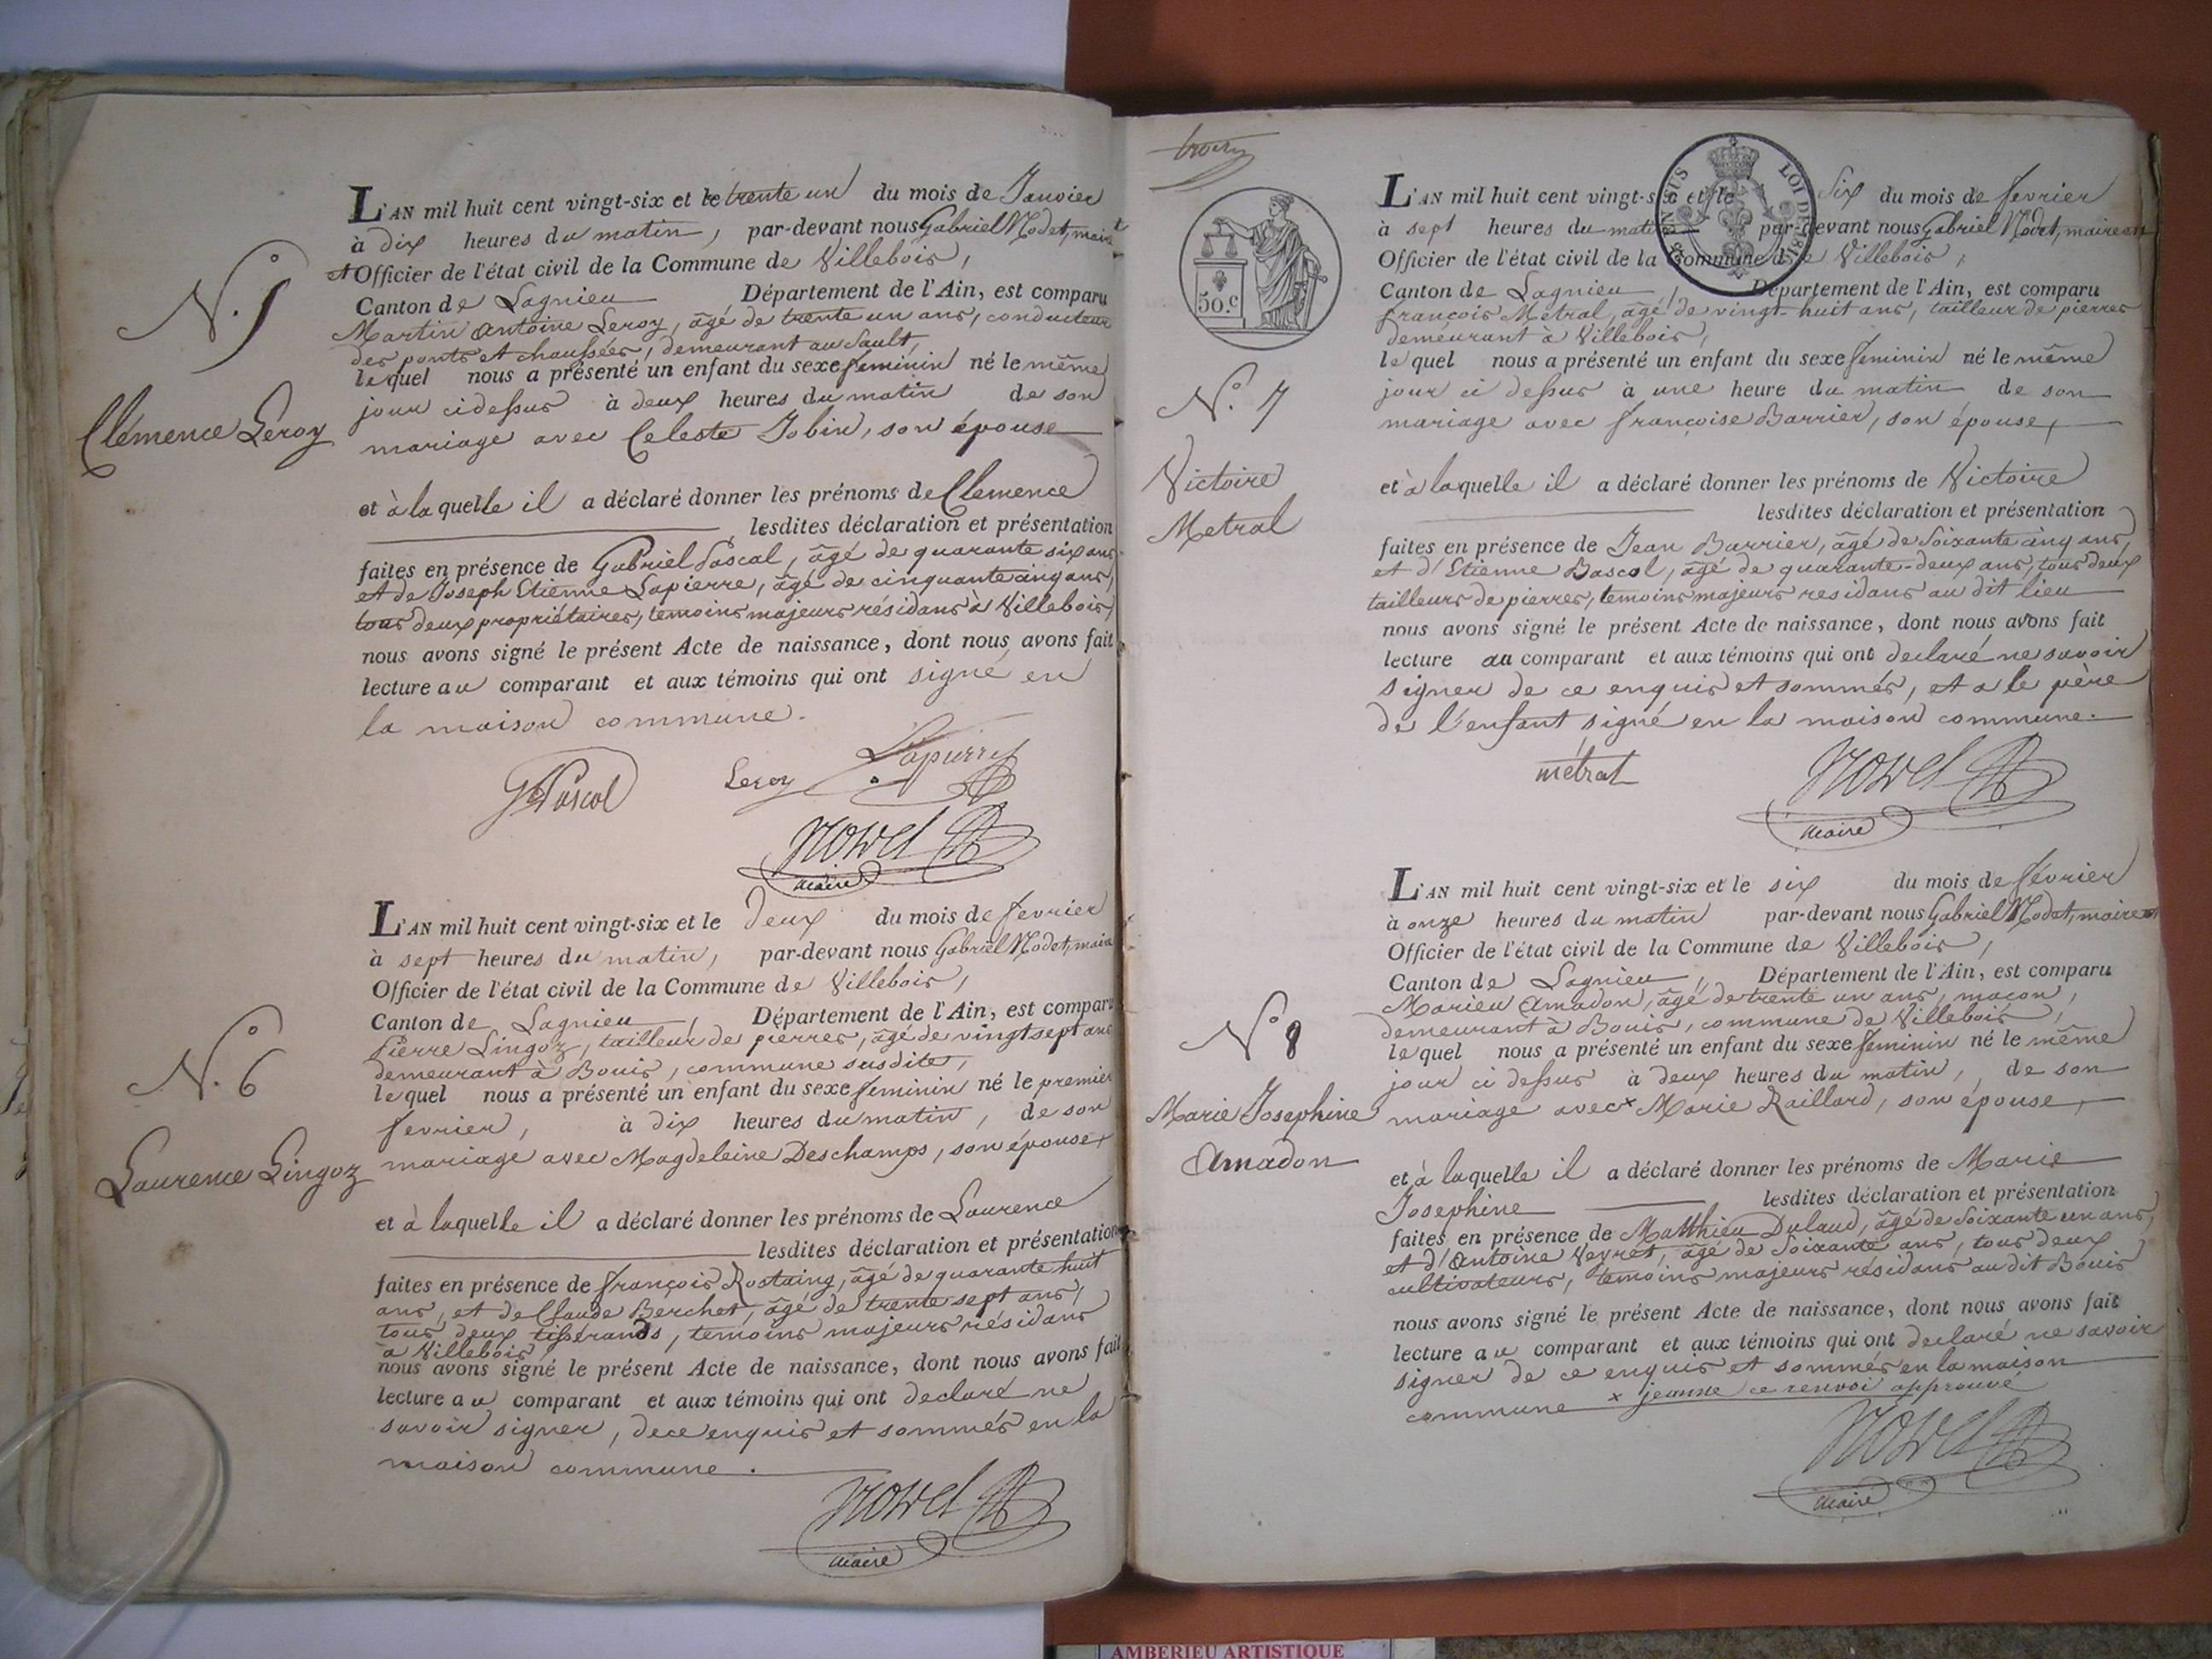 N.° 5
Clémence Leroy
L'AN mil huit cent vingt-six et le trente un du mois de Janvier
à dix heures du matin, par-devant nous Gabriel Nodet, maire
et Officier de l'état civil de la Commune de Villebois,
Canton de Lagnieu, Département de l'Ain, est comparu
Martin Antoine Leroy, âgé de trente un ans, conducteur
des ponts et chaussées, demeurant au Sault,
lequel nous a présenté un enfant du sexe feminin né le même
jour ci dessus à deux heures du matin de son
mariage avec Celeste Jobin, son épouse
et à laquelle il a déclaré donner les prénoms de Clemence
lesdites déclaration et présentation
faites en présence de Gabriel Pascal, âgé de quarante six ans
et de Joseph Etienne Lapierre, âgé de cinquante cinq ans,
tous deux propriétaires, temoins majeurs résidans à Villebois,
nous avons signé le présent Acte de naissance, dont nous avons fait
lecture au comparant et aux témoins qui ont signé en
la maison commune.
G Pascal Leroy Lapierre
maire
N.° 6
Laurence Lingoz
L'AN mil huit cent vingt-six et le deux du mois de fevrier
à sept heures du matin, par-devant nous Gabriel Nodet, maire
Officier de l'état civil de la Commune de Villebois,
Canton de Lagnieu, Département de l'Ain, est comparu
Pierre Lingoz, tailleur de pierres, âgé de vingt sept ans
demeurant à Bouis, commune susdite,
lequel nous a présenté un enfant du sexe feminin né le premier
fevrier, à dix heures du matin, de son
mariage avec Magdeleine Deschamps, son épouse,
et à laquelle il a déclaré donner les prénoms de Laurence
lesdites déclaration et présentation
faites en présence de françois Rostaing, âgé de quarante huit
ans, et de Claude Berchet, âgé de trente sept ans,
tous deux tisserands, temoins majeurs résidans
à Villebois,
nous avons signé le présent Acte de naissance, dont nous avons fait
lecture au comparant et aux témoins qui ont declaré ne
savoir signer, de ce enquis et sommés en la
maison commune.
maire
50.c
N.° 7
Victoire
Metral
L'AN mil huit cent vingt-six et le Six du mois de fevrier
à sept heures du matin par-devant nous Gabriel Nodet, maire et
Officier de l'état civil de la Commune de Villebois,
Canton de Lagnieu, Département de l'Ain, est comparu
françois Métral, âgé de vingt-huit ans, tailleur de pierres
demeurant à Villebois,
lequel nous a présenté un enfant du sexe feminin né le même
jour ci dessus à une heure du matin de son
mariage avec françoise Barrier, son épouse,
et à laquelle il a déclaré donner les prénoms de Victoire
lesdites déclaration et présentation
faites en présence de Jean Barrier, âgé de soixante cinq ans,
et d'Etienne Bascol, âgé de quarante-deux ans, tous deux
tailleurs de pierres, temoins majeurs residans au dit lieu
nous avons signé le présent Acte de naissance, dont nous avons fait
lecture au comparant et aux témoins qui ont declaré ne savoir
signer de ce enquis et sommés, et a le père
de l'enfant signé en la maison commune.
métral
maire
N.° 8
Marie Josephine
Amadon
L'AN mil huit cent vingt-six et le six du mois de février
à onze heures du matin par-devant nous Gabriel Nodet, maire et
Officier de l'état civil de la Commune de Villebois,
Canton de Lagnieu, Département de l'Ain, est comparu
Marieu Amadon, âgé de trente un ans, maçon,
demeurant à Bouis, commune de Villebois,
lequel nous a présenté un enfant du sexe feminin né le même
jour ci dessus à deux heures du matin, de son
mariage avec x Marie Raillard, son épouse,
et à laquelle il a déclaré donner les prénoms de Marie
Josephine lesdites déclaration et présentation
faites en présence de Matthieu Dulaud, âgé de soixante un ans,
et d'Antoine Veyret, âgé de soixante ans, tous deux
cultivateurs, temoins majeurs résidans au dit Bouis
nous avons signé le présent Acte de naissance, dont nous avons fait
lecture au comparant et aux témoins qui ont declaré ne savoir
signer de ce enquis et sommés en la maison
commune x jeanne ce renvoi approuvé
maire
AMBERIEU ARTISTIQUE